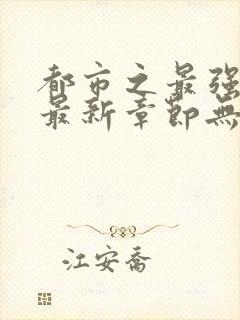 都市之最强
最新章節無
江安喬